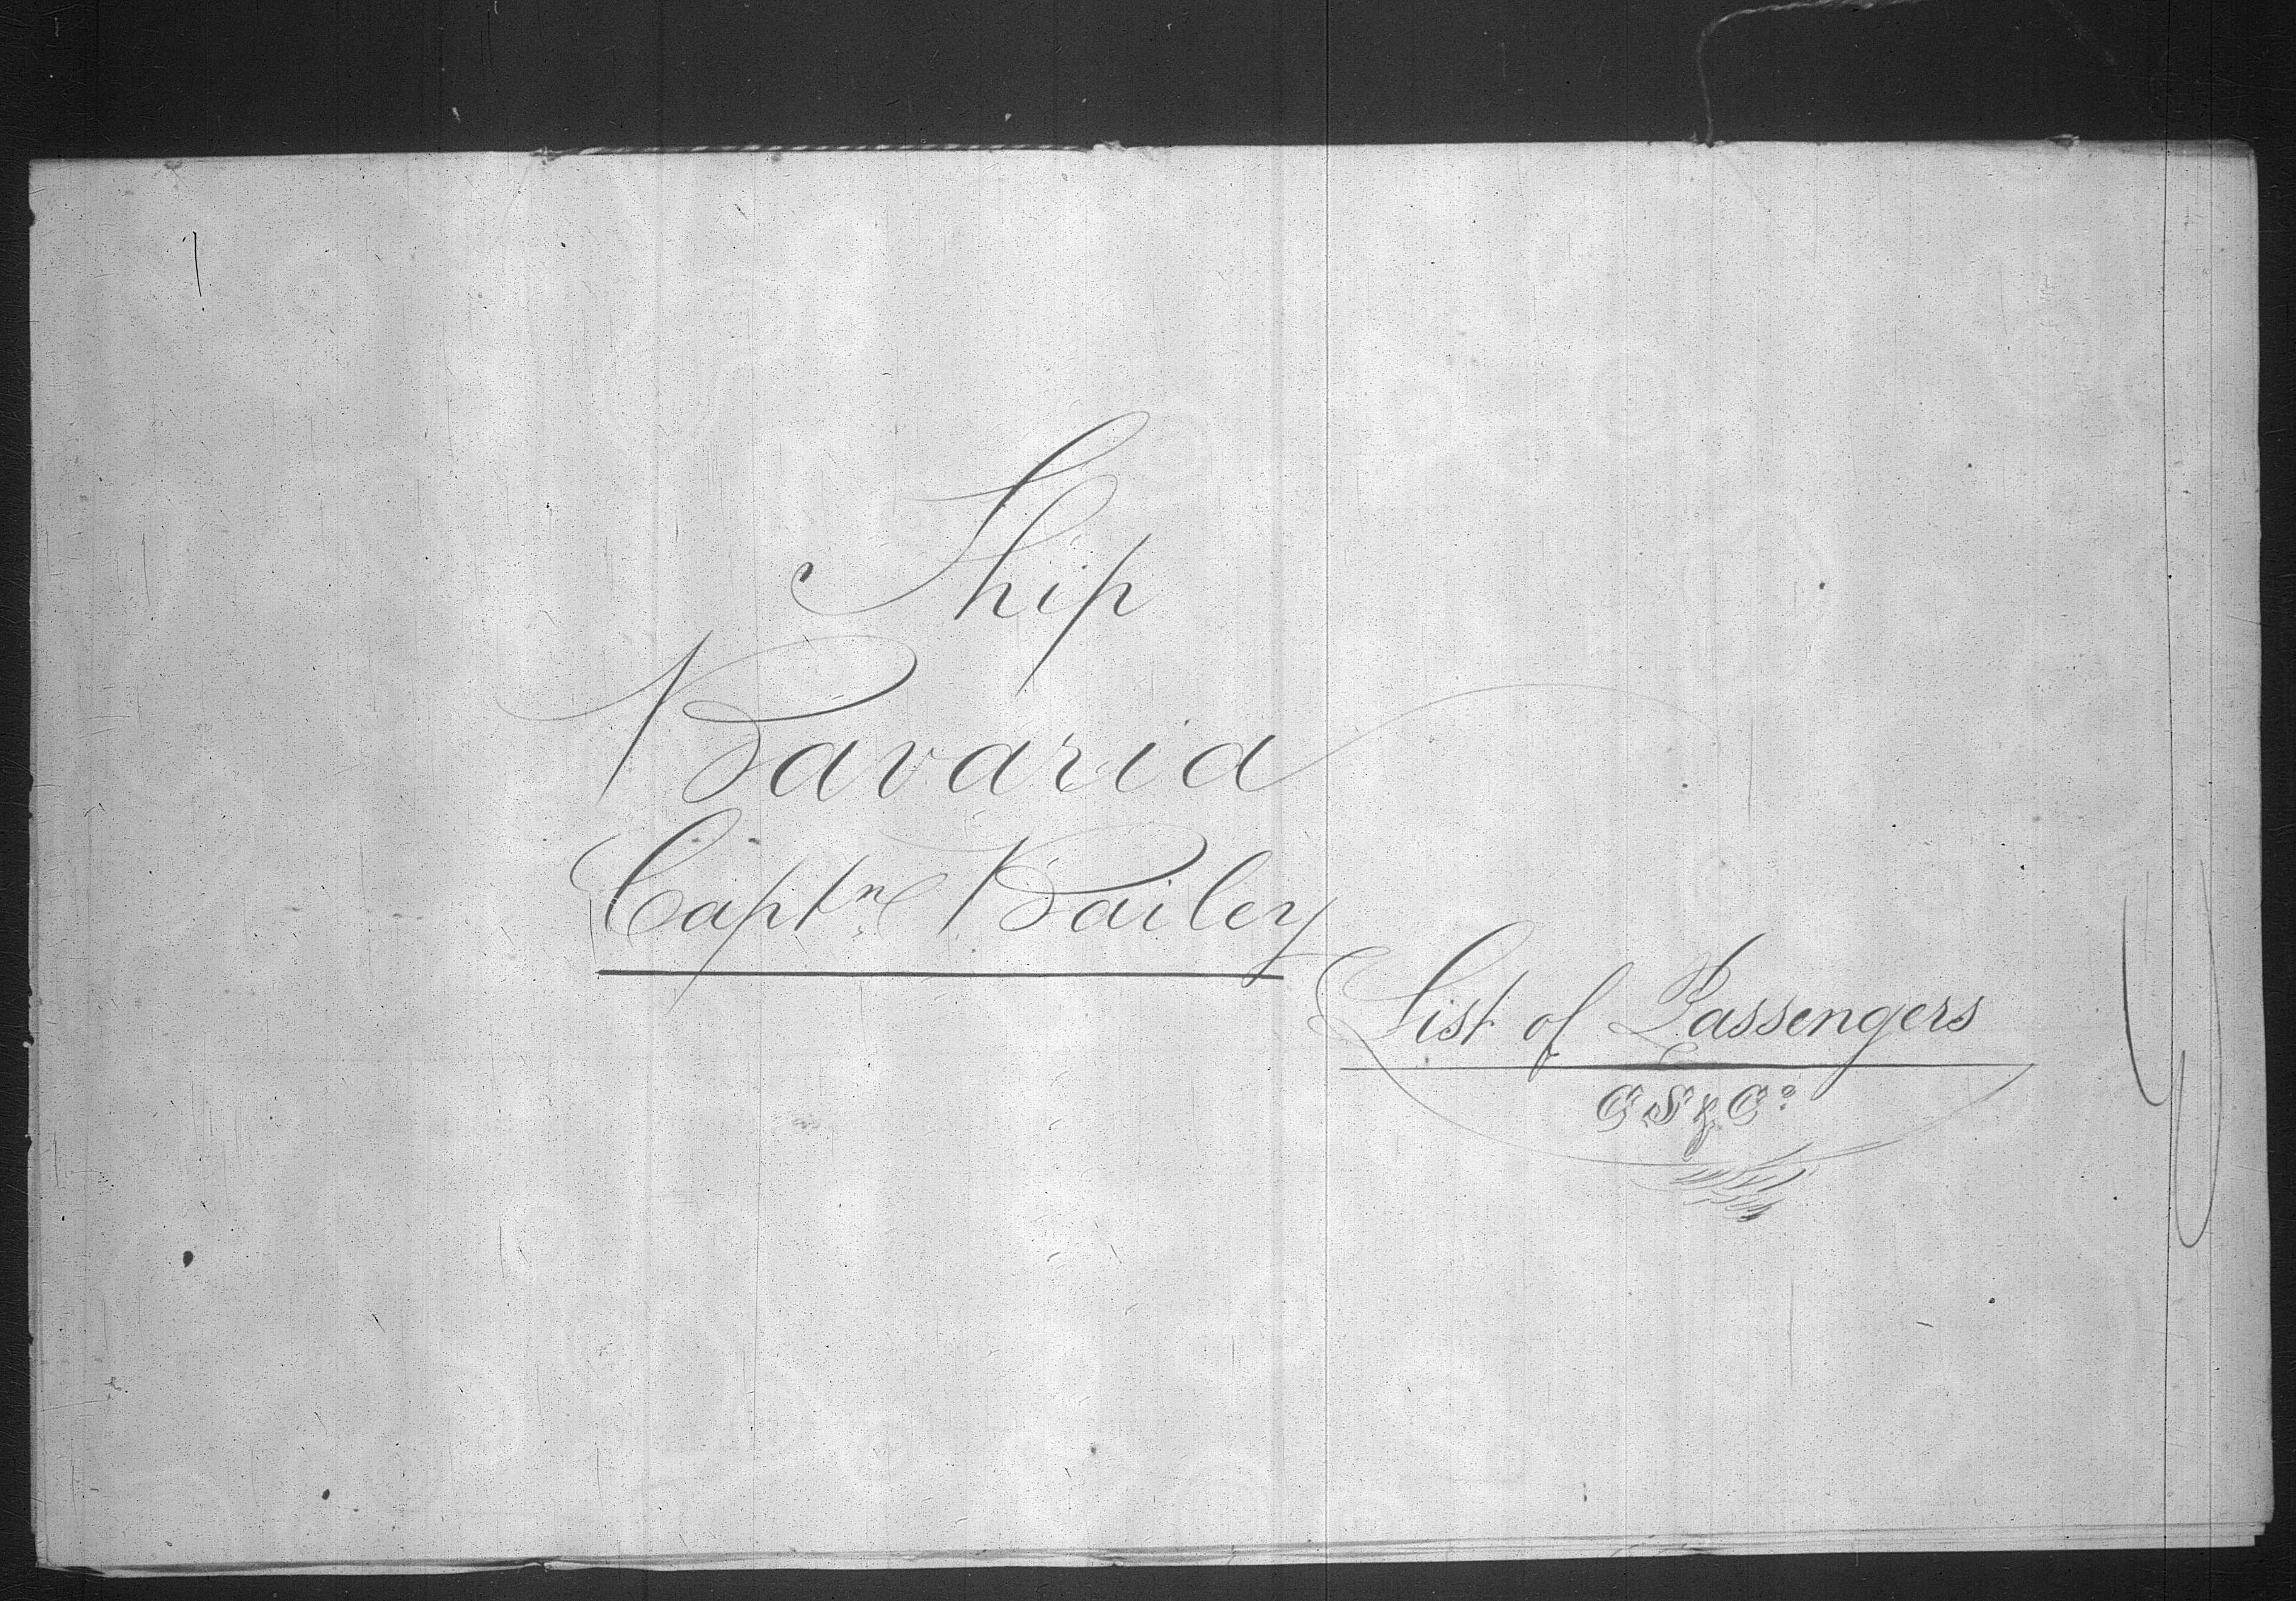 Ship
Bavaria
Captn Bailey
List of Passengers
C S & Co